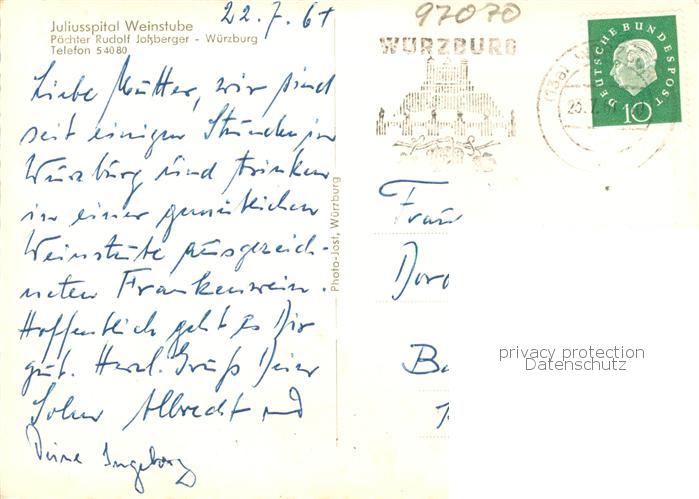 Juliusspital Weinstube
Pächter Rudolf Joßberger - Würzburg
Telefon 54080
22.7.61
97070
WÜRZBURG
DEUTSCHE BUNDESPOST
10
Liebe Mutter, wir sind
seit einigen Stunden in
Würzburg und trinken
in einer gemütlichen
Weinstube ausgezeich-
neten Frankenwein.
Hoffentlich geht es Dir
gut. Herzl. Gruß Deine
Sohn Albrecht und
Deine Ingeborg
Photo-Jost, Würzburg
Frau
Doro
Ba
privacy protection
Datenschutz